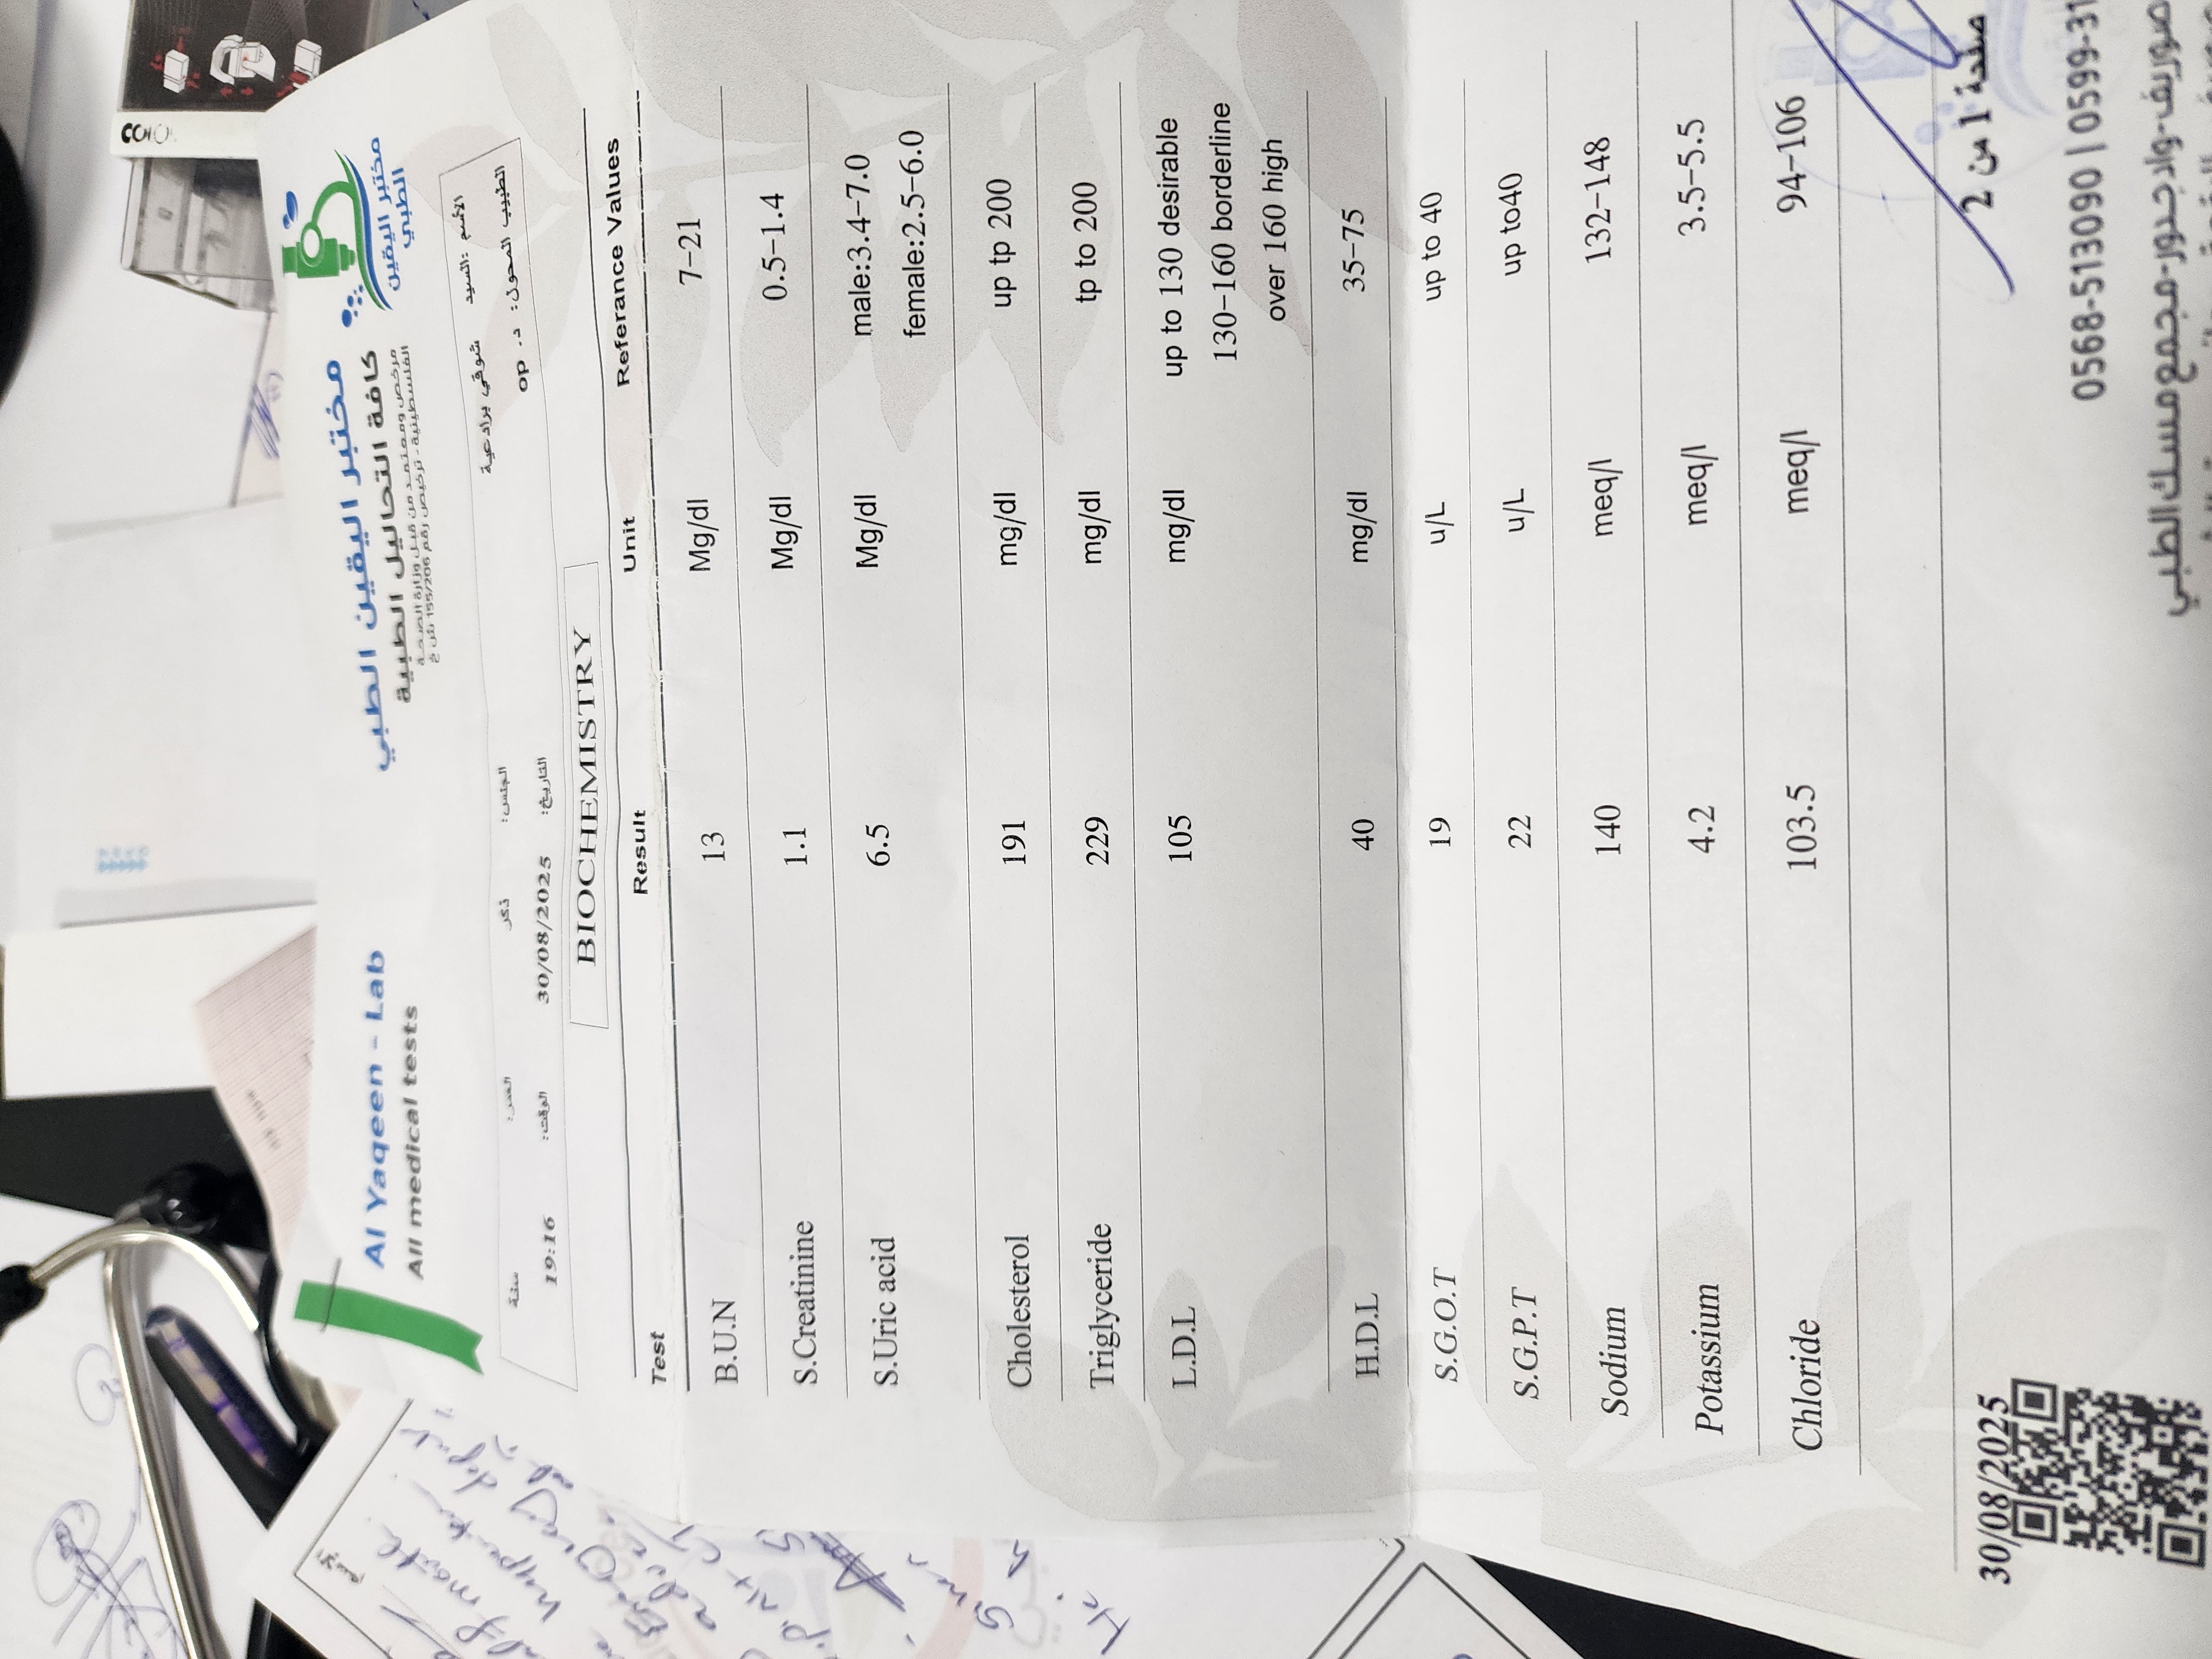 Al Yaqeen - Lab
All medical tests
مختبر اليقين الطبي
كافة التحاليل الطبية
مرخص ومعتمد من قبل وزارة الصحة
الفلسطينية - ترخيص رقم 155/206
مختبر اليقين
الطبي
الأسم :السيد شوقي برادعية
الجنس: ذكر
العمر: سنة
الطبيب المحول: د. op
التاريخ: 30/08/2025
الوقت: 19:16
BIOCHEMISTRY
Test Result Unit Referance Values
B.U.N 13 Mg/dl 7-21
S.Creatinine 1.1 Mg/dl 0.5-1.4
S.Uric acid 6.5 Mg/dl male:3.4-7.0
female:2.5-6.0
Cholesterol 191 mg/dl up tp 200
Triglyceride 229 mg/dl tp to 200
L.D.L 105 mg/dl up to 130 desirable
130-160 borderline
over 160 high
H.D.L 40 mg/dl 35-75
S.G.O.T 19 u/L up to 40
S.G.P.T 22 u/L up to40
Sodium 140 meq/l 132-148
Potassium 4.2 meq/l 3.5-5.5
Chloride 103.5 meq/l 94-106
30/08/2025
صفحة 1 من 2
0568-513090 | 0599-31
صوريف-واد جدور-مجمع مسك الطبي